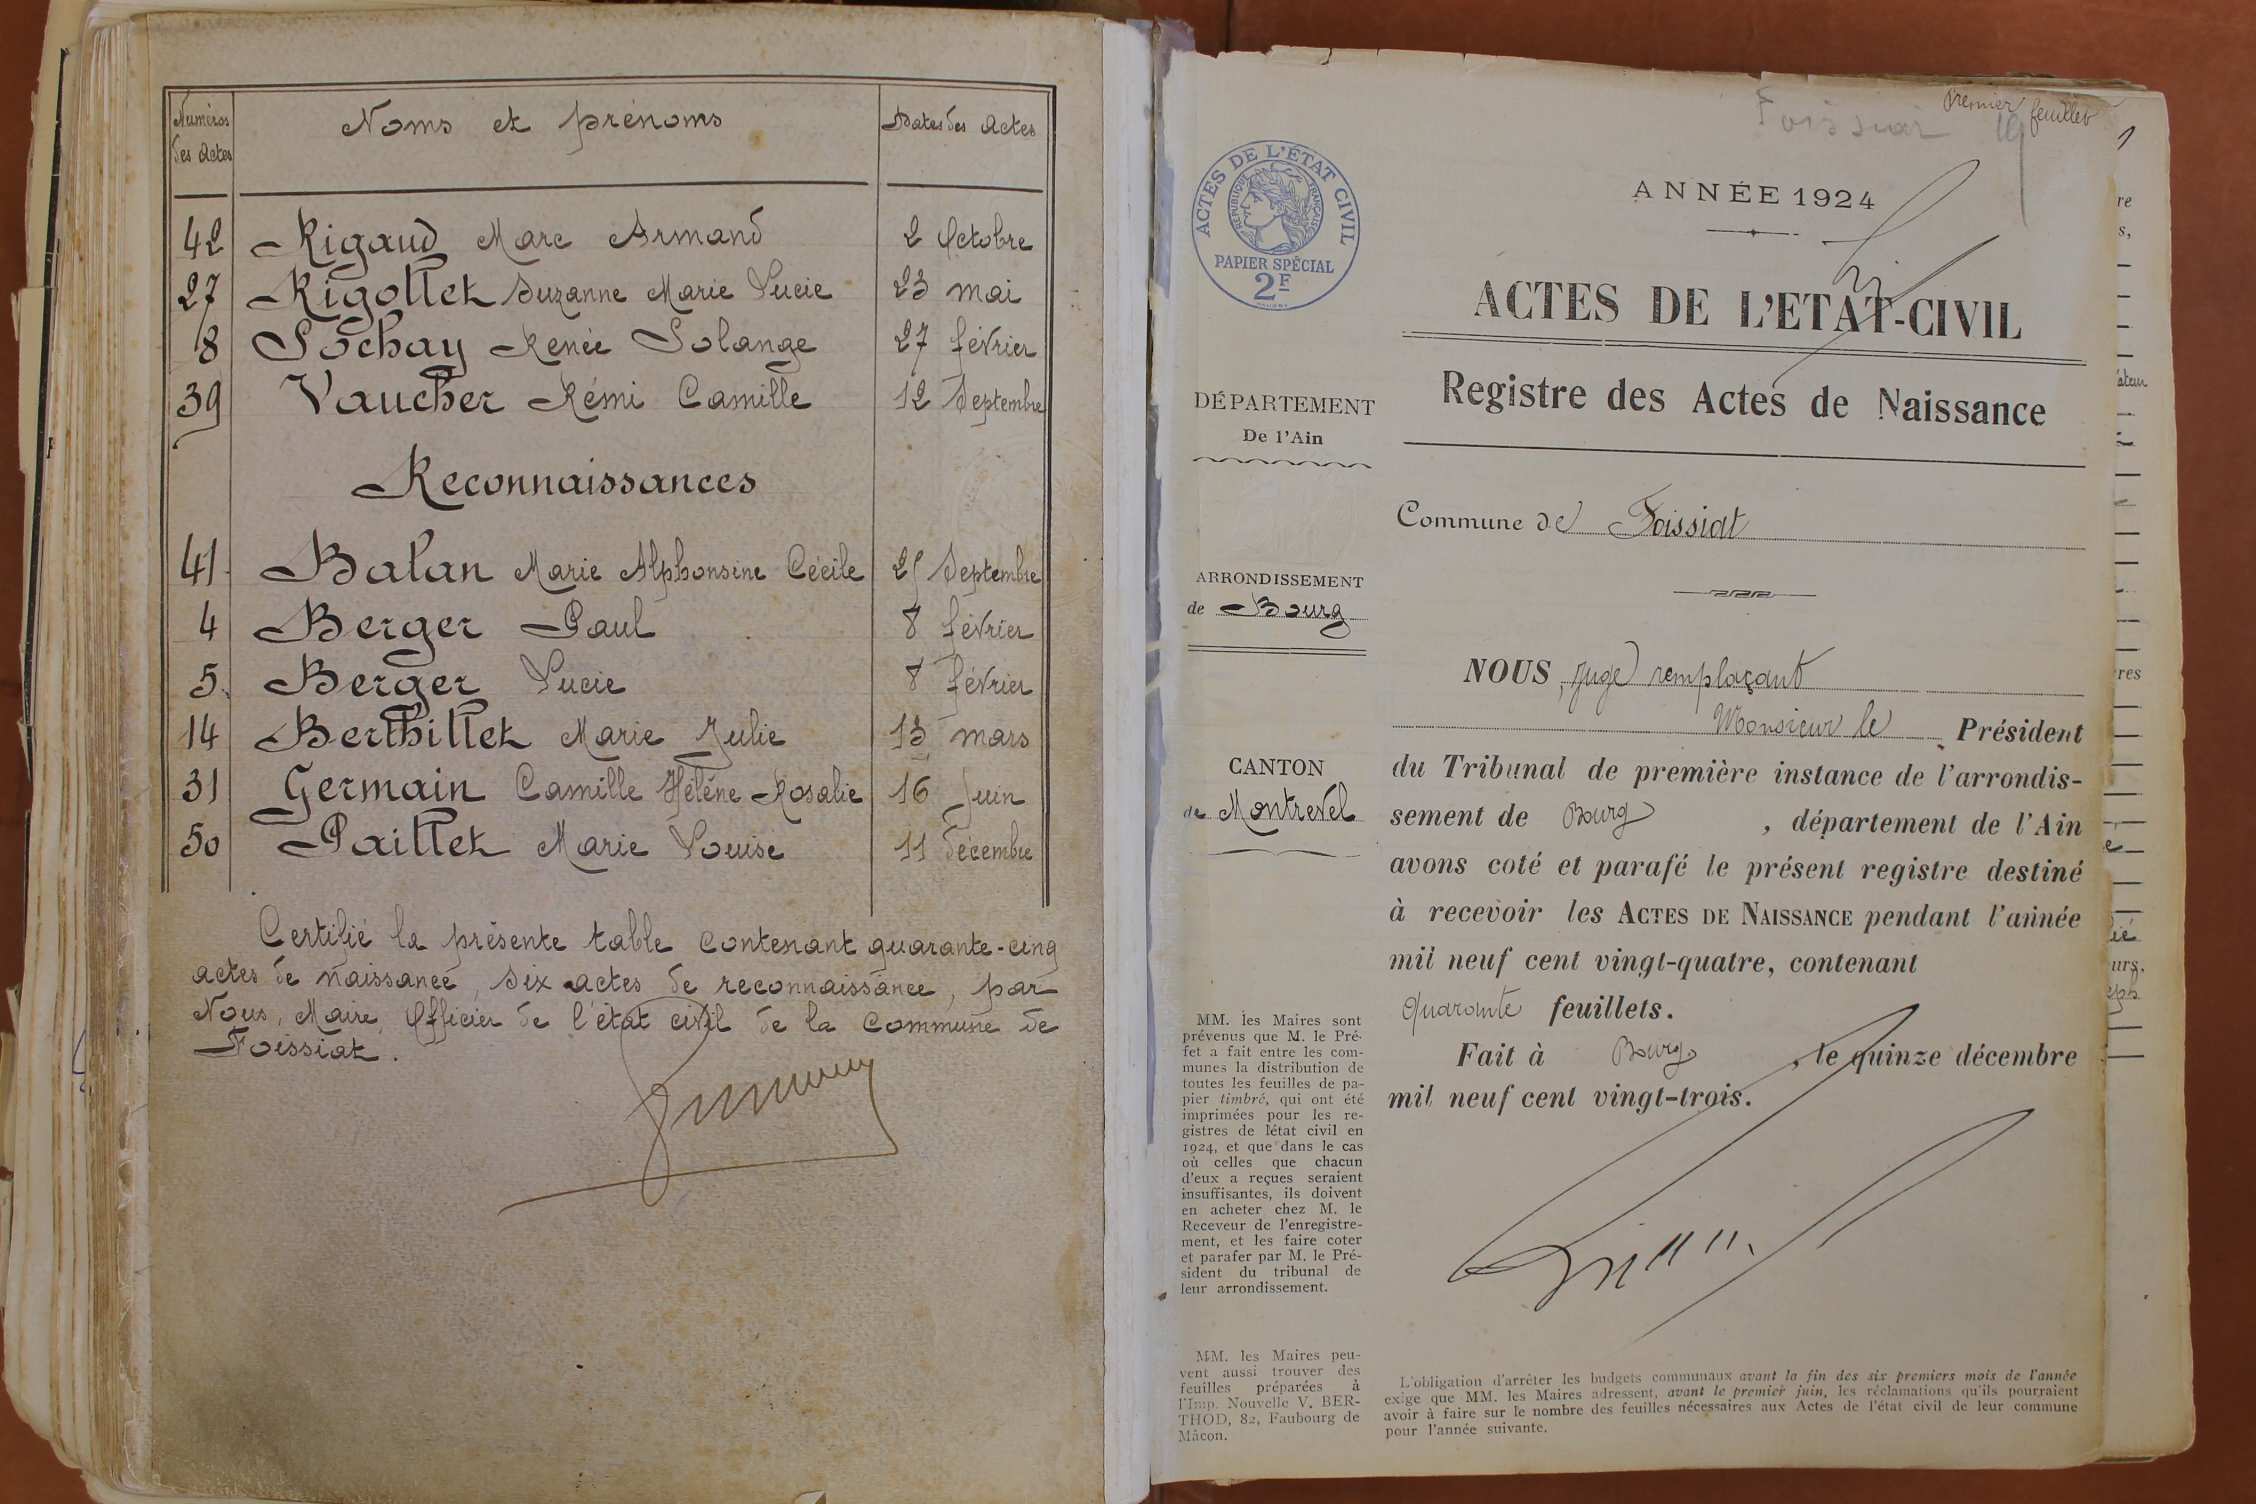 Numéros des Actes
Noms et prénoms
Dates des Actes
42 Rigaud Marc Armand 2 Octobre
27 Rigollet Suzanne Marie Lucie 23 mai
8 Sochay Renée Solange 27 février
39 Vaucher Rémi Camille 12 Septembre
Reconnaissances
41 Balan Marie Alphonsine Cécile 25 Septembre
4 Berger Paul 8 février
5 Berger Lucie 8 février
14 Berthillet Marie Julie 13 mars
31 Germain Camille Hélène Rosalie 16 Juin
50 Paillet Marie Louise 11 décembre
Certifié la présente table contenant quarante-cinq
actes de naissance, six actes de reconnaissance, par
Nous, Maire, Officier de l'état civil de la commune de
Foissiat.
Foissiat 19
Premier feuillet
ACTES DE L'ÉTAT CIVIL
RÉPUBLIQUE FRANÇAISE
PAPIER SPÉCIAL
2F
ANNÉE 1924
ACTES DE L'ETAT-CIVIL
Registre des Actes de Naissance
DÉPARTEMENT
De l'Ain
Commune de Foissiat
ARRONDISSEMENT
de Bourg
CANTON
de Montrevel
NOUS, Juge remplaçant
Monsieur le Président
du Tribunal de première instance de l'arrondis-
sement de Bourg, département de l'Ain
avons coté et parafé le présent registre destiné
à recevoir les ACTES DE NAISSANCE pendant l'année
mil neuf cent vingt-quatre, contenant
quarante feuillets.
Fait à Bourg, le quinze décembre
mil neuf cent vingt-trois.
MM. les Maires sont
prévenus que M. le Pré-
fet a fait entre les com-
munes la distribution de
toutes les feuilles de pa-
pier timbré, qui ont été
imprimées pour les re-
gistres de létat civil en
1924, et que dans le cas
où celles que chacun
d'eux a reçues seraient
insuffisantes, ils doivent
en acheter chez M. le
Receveur de l'enregistre-
ment, et les faire coter
et parafer par M. le Pré-
sident du tribunal de
leur arrondissement.
MM. les Maires peu-
vent aussi trouver des
feuilles préparées à
l'Imp. Nouvelle V. BER-
THOD, 82, Faubourg de
Mâcon.
L'obligation d'arrêter les budgets communaux avant la fin des six premiers mois de l'année
exige que MM. les Maires adressent, avant le premier juin, les réclamations qu'ils pourraient
avoir à faire sur le nombre des feuilles nécessaires aux Actes de l'état civil de leur commune
pour l'année suivante.